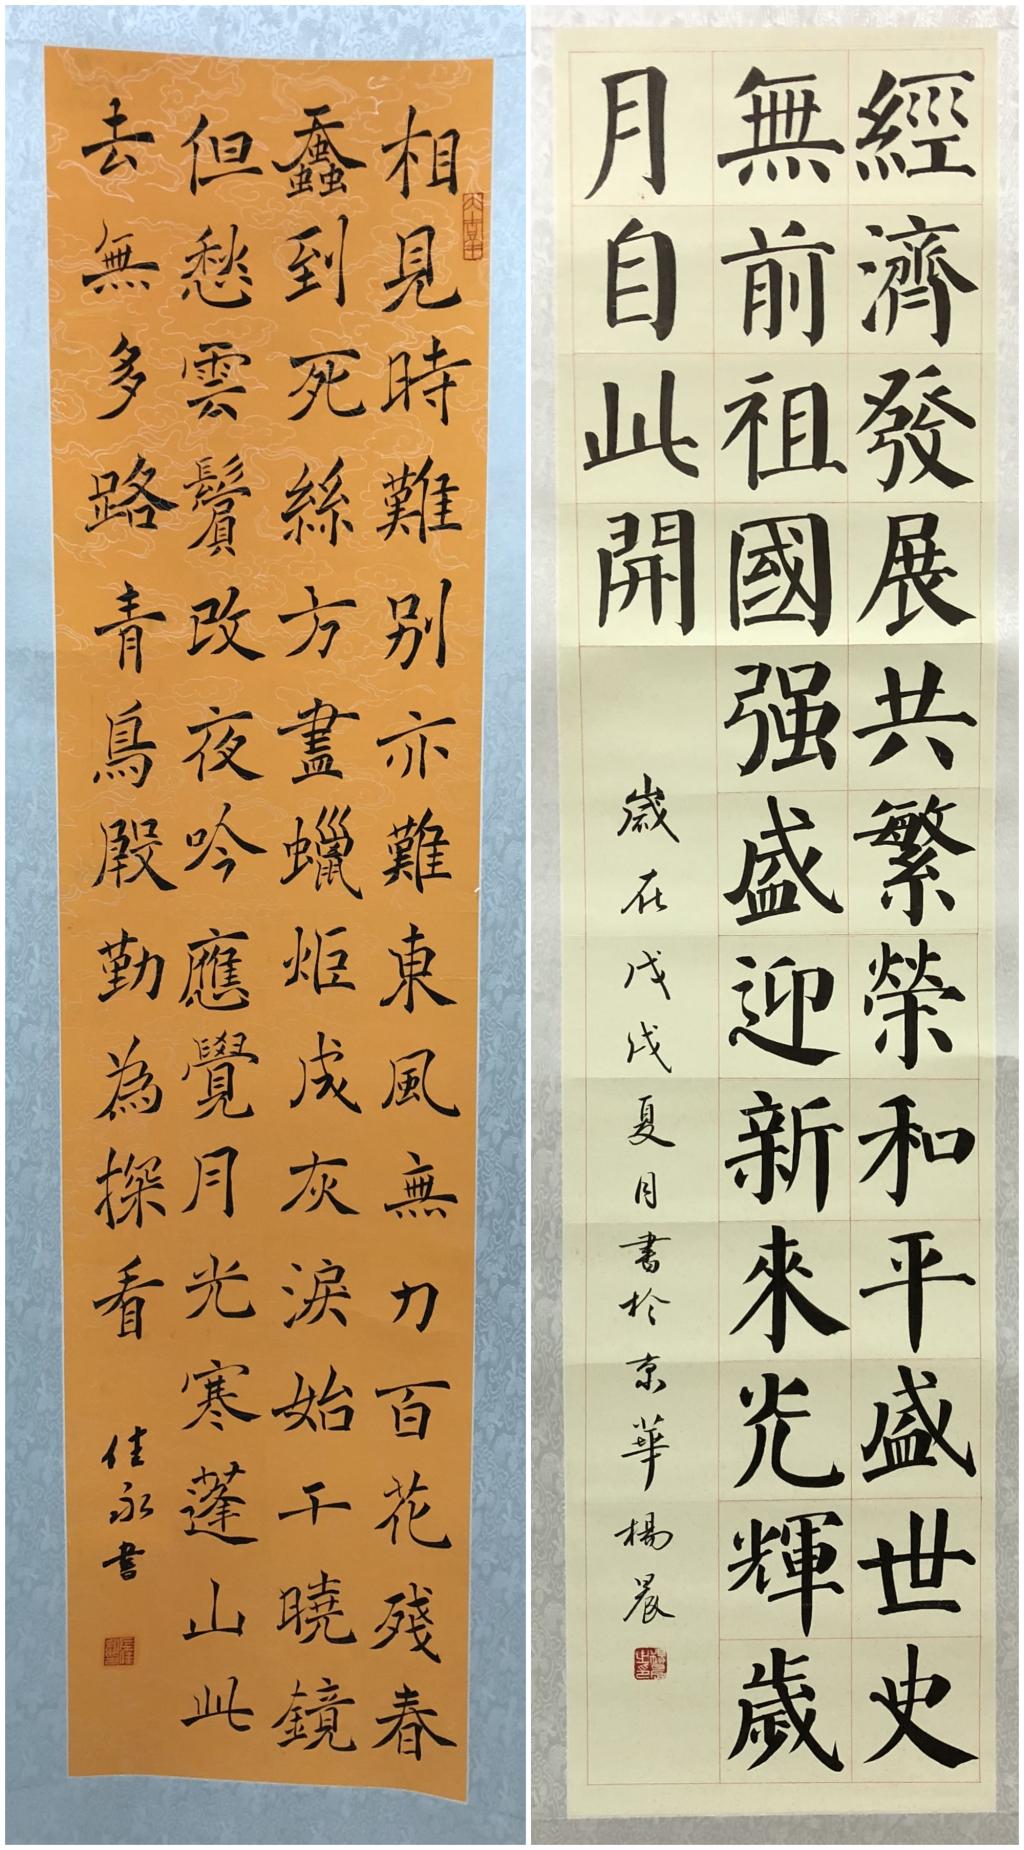 相見時難別亦難東風無力百花殘春
蠶到死絲方盡蠟炬成灰淚始干曉鏡
但愁雲鬢改夜吟應覺月光寒蓬山此
去無多路青鳥殷勤為探看
佳永書
經濟發展共繁榮和平盛世史
無前祖國强盛迎新來光輝歲
月自此開
歲在戊戌夏月書於京華楊晨